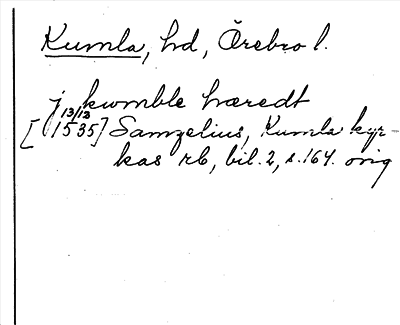 Kumla, hd, Örebro l.
j kwmble hæredt
[13/12 1535] Samzelius, Kumla kyr-
kas rb, bil. 2, s. 164. orig